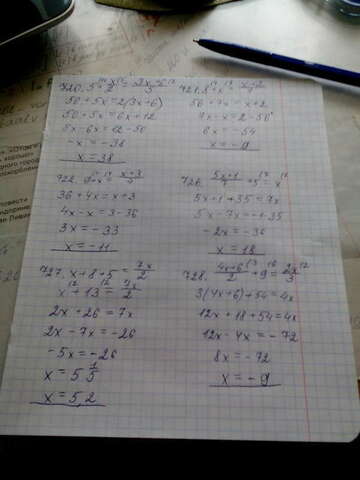 50+5x=2(3x+6)
50+5x=6x+12
5x-6x=12-50
-x=-38
x=38
56+7x=x+2
7x-x=2-56
6x=-54
x=-9
722. 9+x=\frac{x+3}{4}
36+4x=x+3
4x-x=3-36
3x=-33
x=-11
726. \frac{5x+1}{7}+5=x
5x+1+35=7x
5x-7x=-1-35
-2x=-36
x=18
727. x+8+5=\frac{7x}{2}
x+13=\frac{7x}{2}
2x+26=7x
2x-7x=-26
-5x=-26
x=5\frac{1}{5}
x=5,2
728. \frac{4x+6}{2}+9=\frac{2x}{3}
3(4x+6)+54=4x
12x+18+54=4x
12x-4x=-72
8x=-72
x=-9